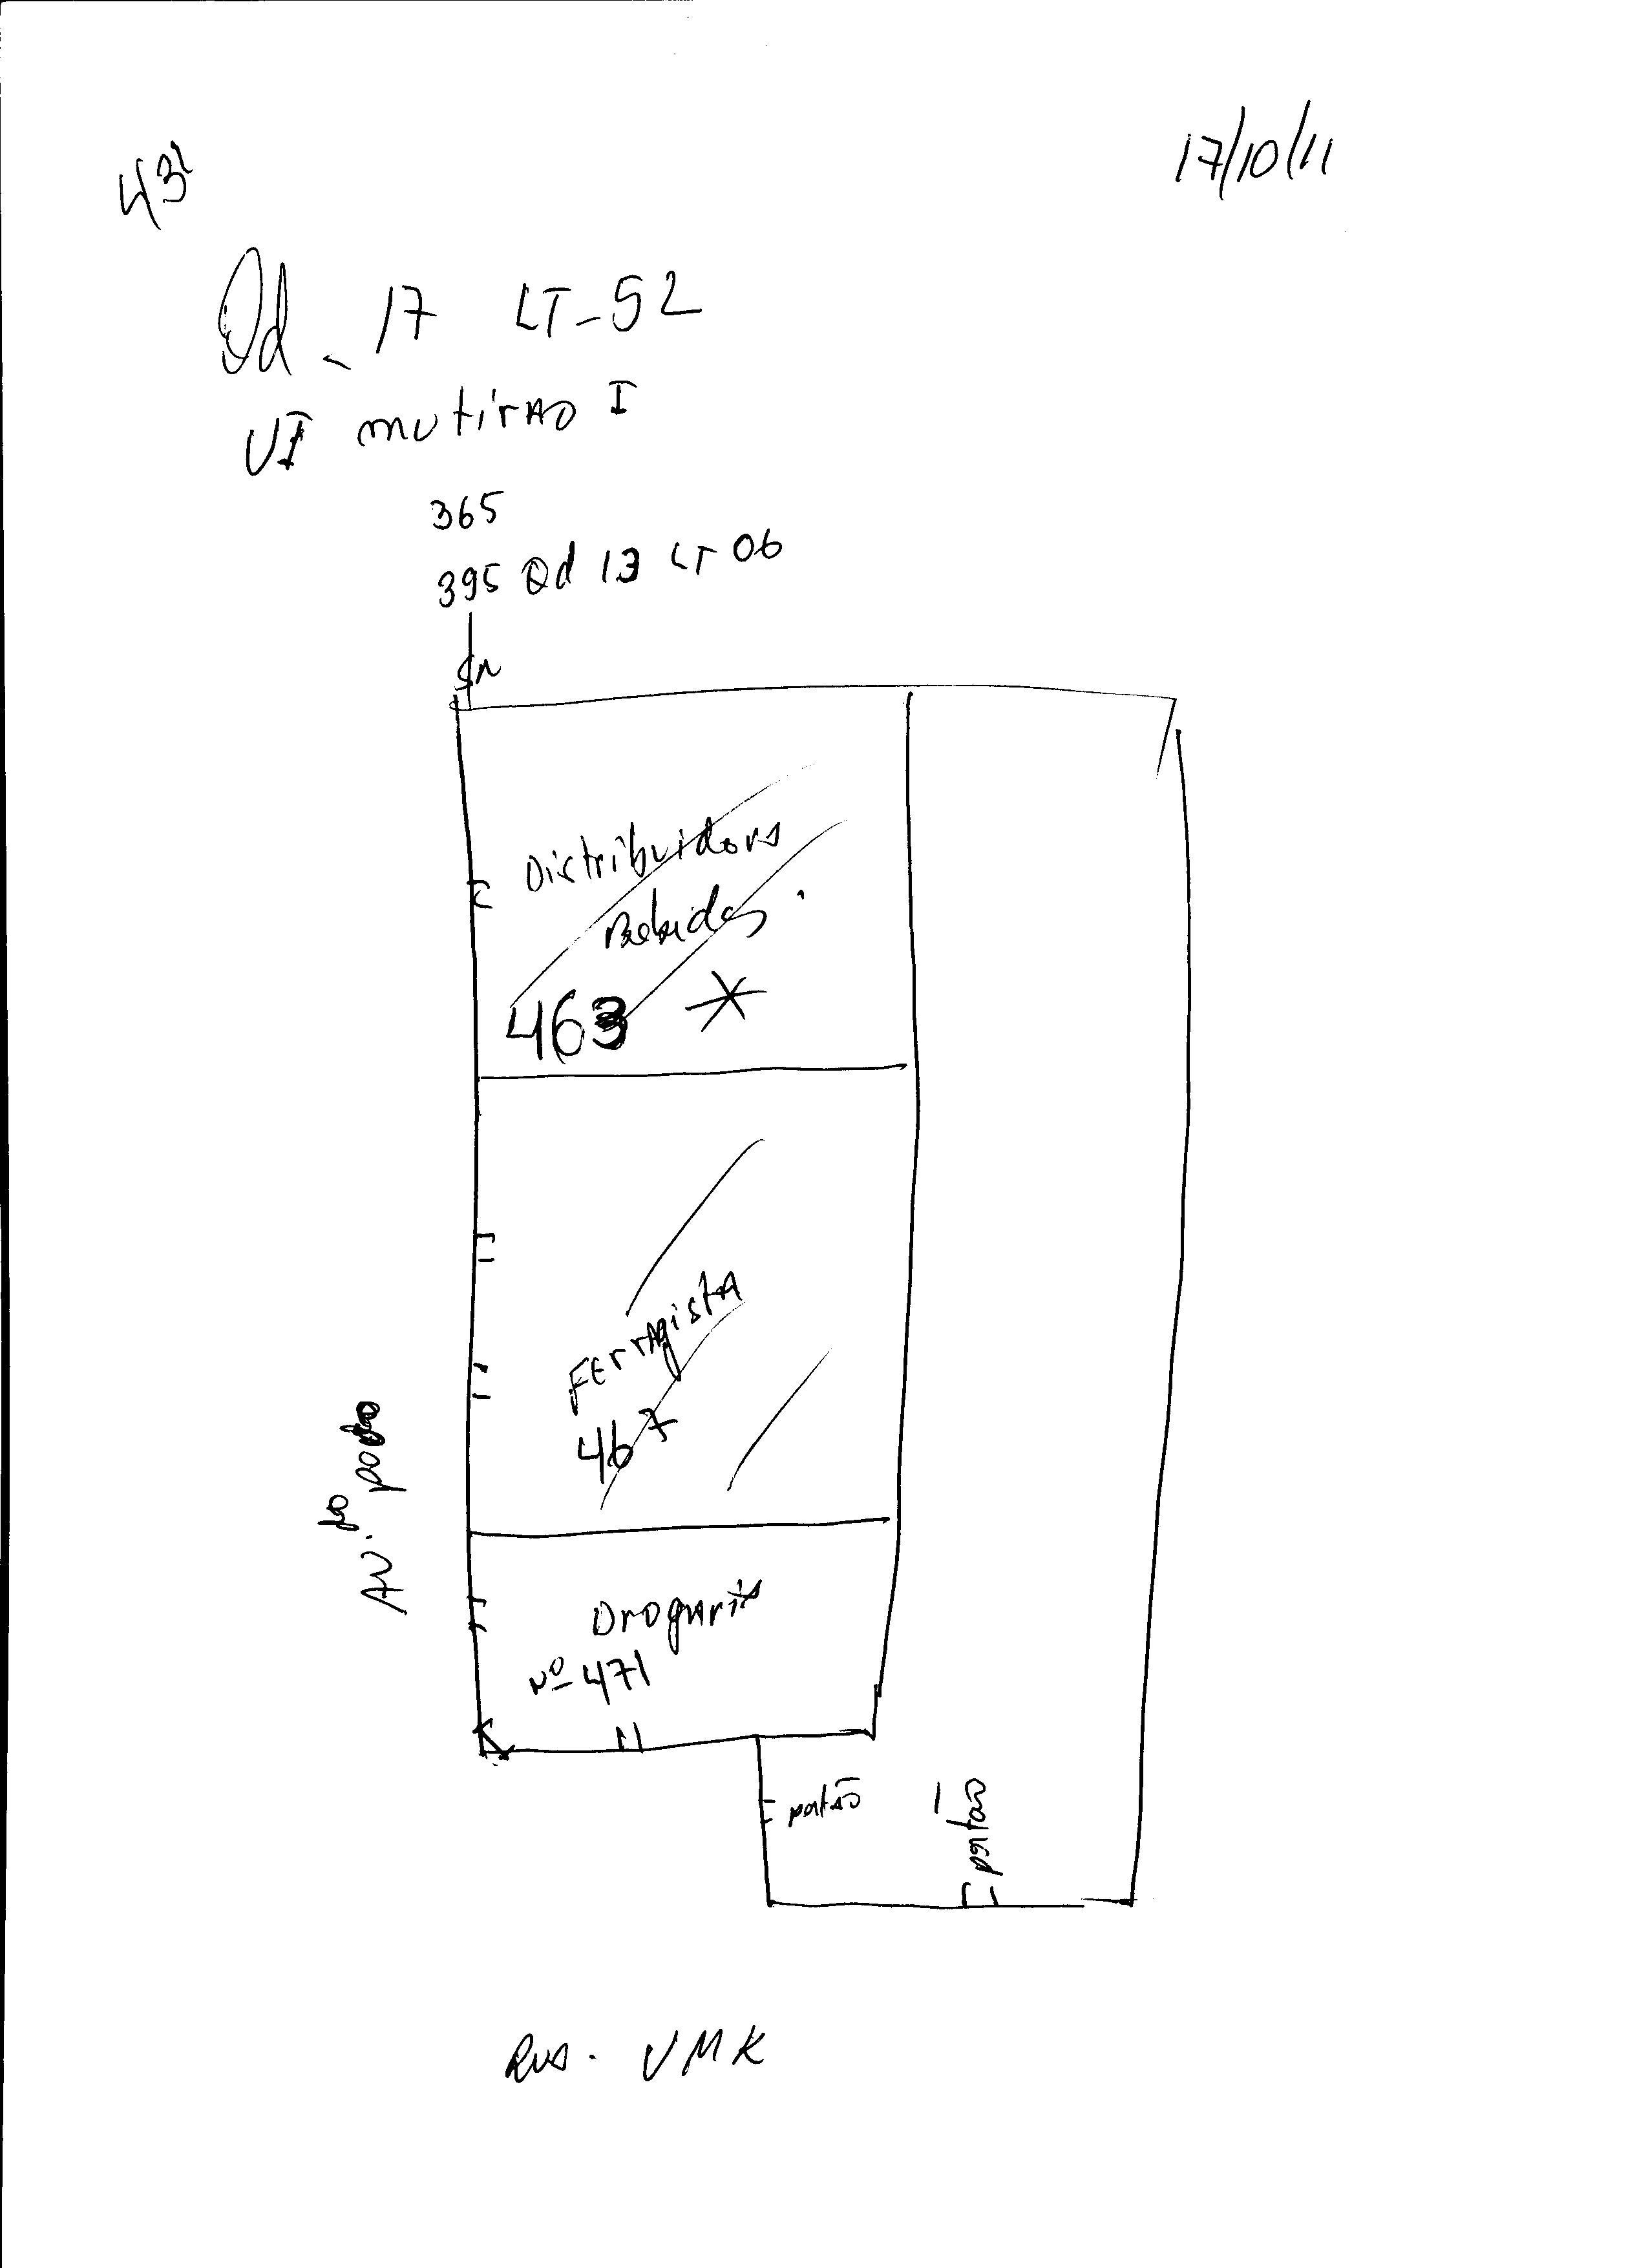 17/10/11
43
Qd - 17 LT-52
VI mutirao I
365
395 Qd 13 LT 06
SN
Distribuidora
Bebidas.
463 *
Ferragista
467
Av. do povo
Drogaria
Nº 471
portão
portão
Rua. VMK